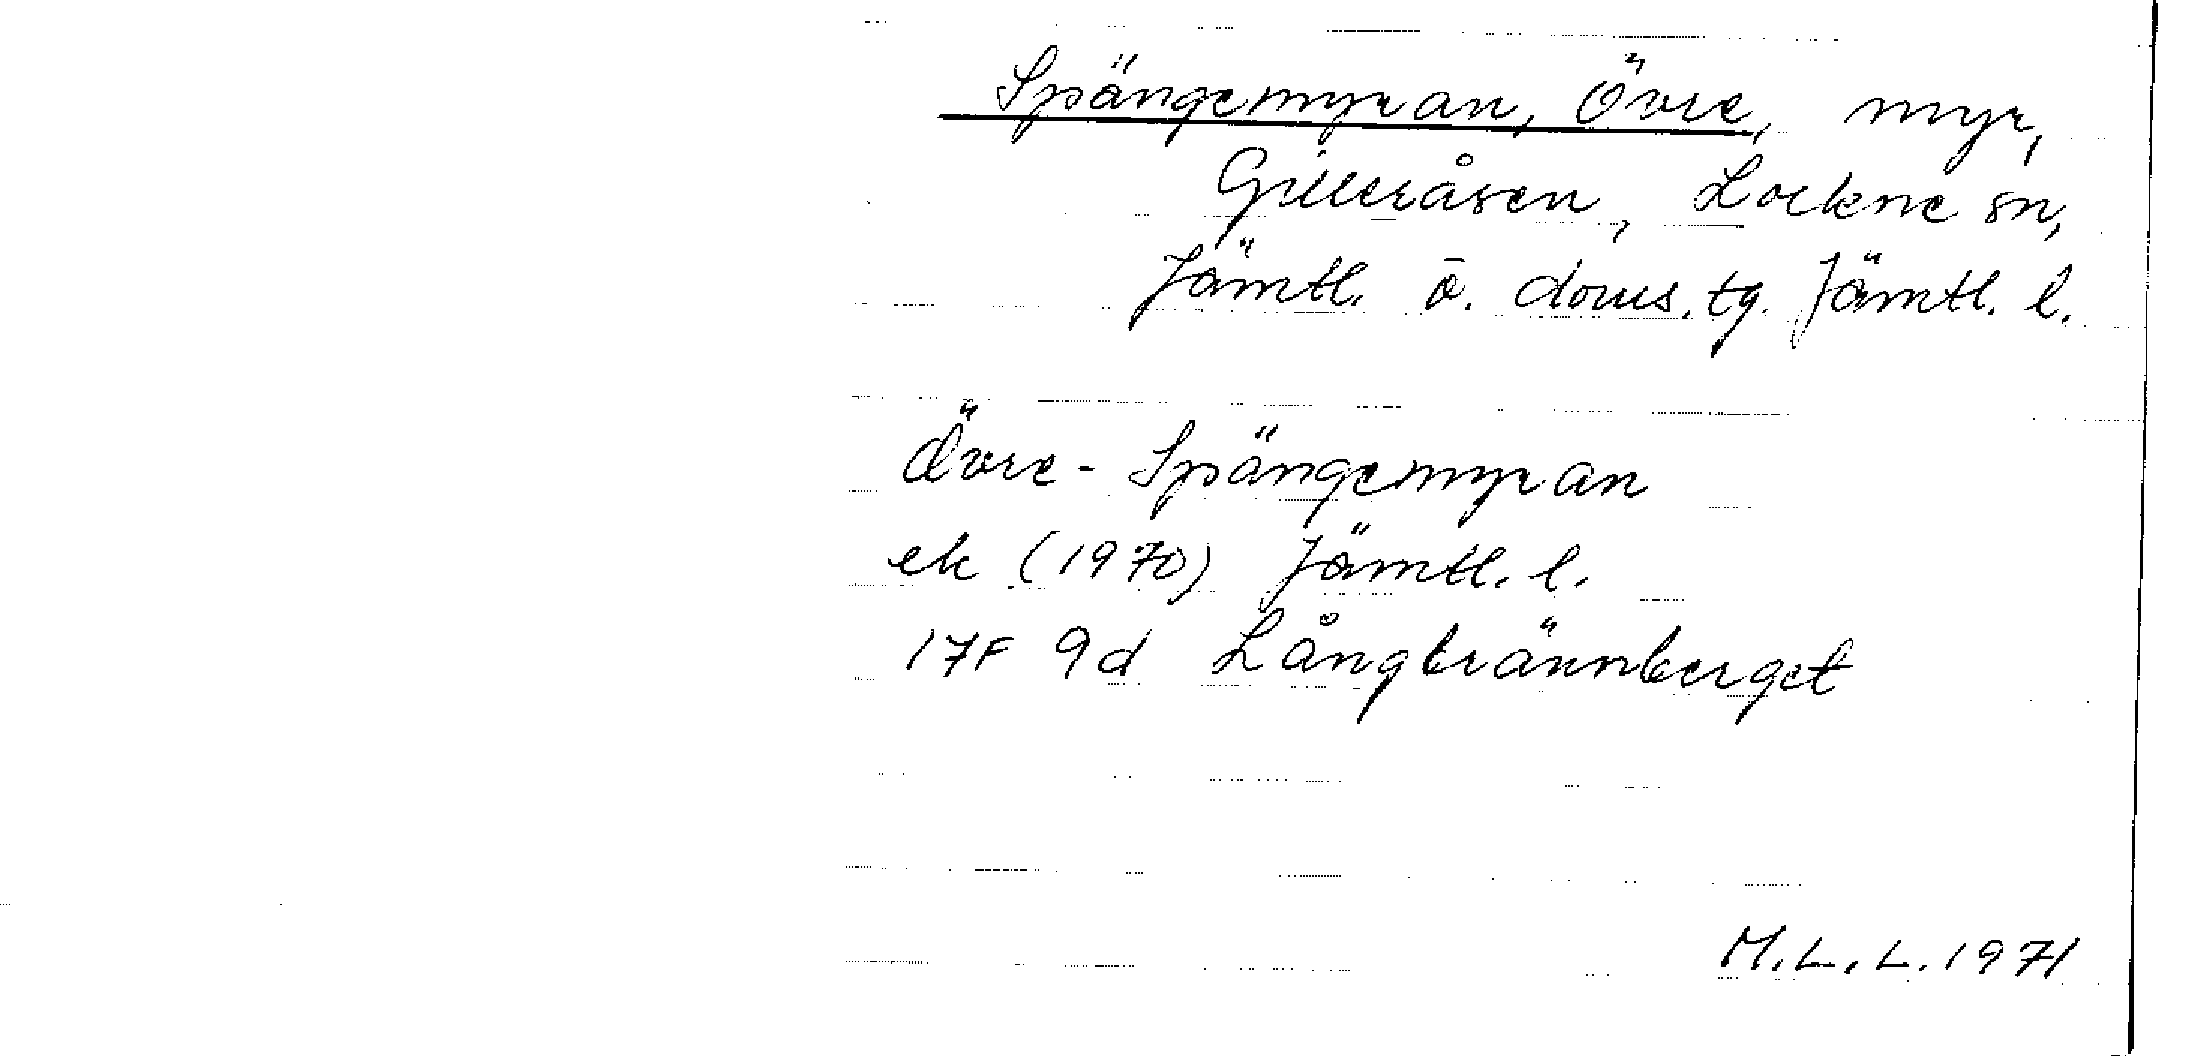 Spängemyran, Övre, myr,
Gilleråsen, Lockne sn,
Jämtl. ö. doms.tg. Jämtl. l.
Övre-Spängemyran
ek (1970) Jämtl. l.
17F 9d Långbrännberget
M.L.L. 1971